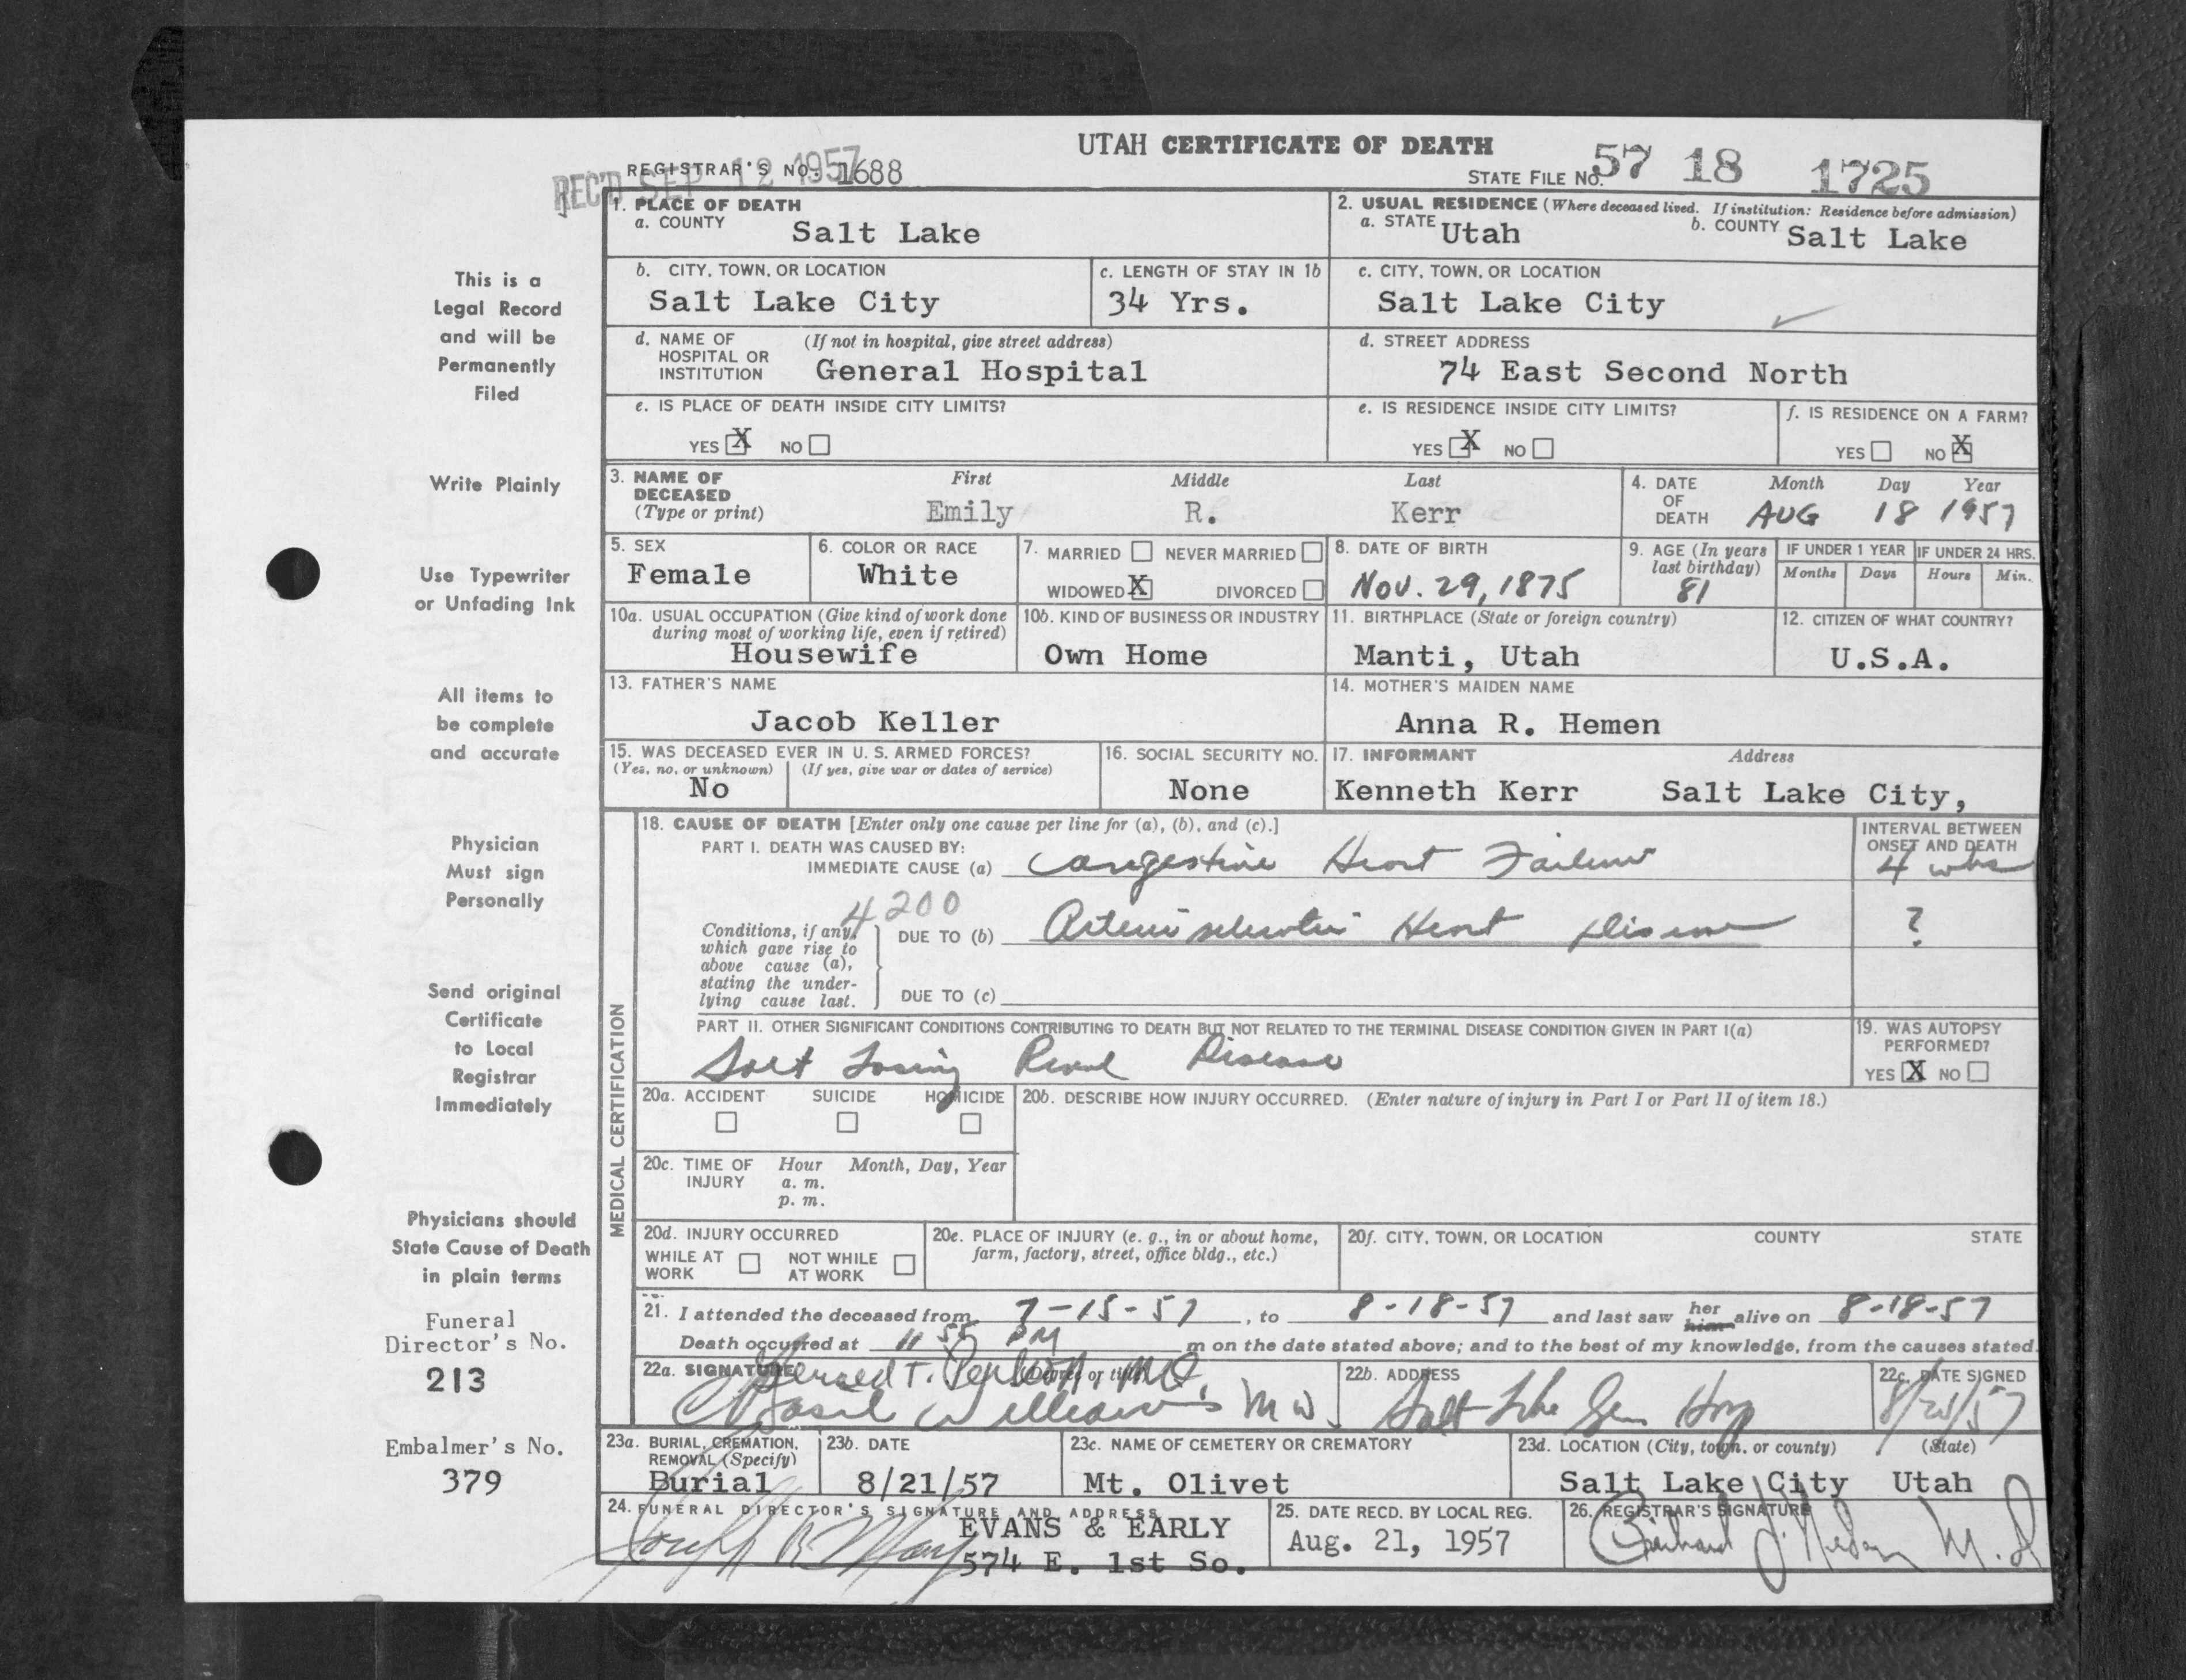 UTAH CERTIFICATE OF DEATH
REC'D SEP 12 1957
REGISTRAR'S NO. 1688
STATE FILE NO. 57 18 1725
1. PLACE OF DEATH
a. COUNTY Salt Lake
2. USUAL RESIDENCE (Where deceased lived. If institution: Residence before admission)
a. STATE Utah b. COUNTY Salt Lake
b. CITY, TOWN, OR LOCATION
Salt Lake City
c. LENGTH OF STAY IN 1b
34 Yrs.
c. CITY, TOWN, OR LOCATION
Salt Lake City
d. NAME OF HOSPITAL OR INSTITUTION (If not in hospital, give street address)
General Hospital
d. STREET ADDRESS
74 East Second North
e. IS PLACE OF DEATH INSIDE CITY LIMITS?
YES X NO
e. IS RESIDENCE INSIDE CITY LIMITS?
YES X NO
f. IS RESIDENCE ON A FARM?
YES NO X
3. NAME OF DECEASED (Type or print)
First Middle Last
Emily R. Kerr
4. DATE OF DEATH Month Day Year
AUG 18 1957
5. SEX
Female
6. COLOR OR RACE
White
7. MARRIED NEVER MARRIED
WIDOWED X DIVORCED
8. DATE OF BIRTH
Nov. 29, 1875
9. AGE (In years last birthday)
81
IF UNDER 1 YEAR
Months Days
IF UNDER 24 HRS.
Hours Min.
10a. USUAL OCCUPATION (Give kind of work done during most of working life, even if retired)
Housewife
10b. KIND OF BUSINESS OR INDUSTRY
Own Home
11. BIRTHPLACE (State or foreign country)
Manti, Utah
12. CITIZEN OF WHAT COUNTRY?
U.S.A.
13. FATHER'S NAME
Jacob Keller
14. MOTHER'S MAIDEN NAME
Anna R. Hemen
15. WAS DECEASED EVER IN U. S. ARMED FORCES?
(Yes, no, or unknown) (If yes, give war or dates of service)
No
16. SOCIAL SECURITY NO.
None
17. INFORMANT Address
Kenneth Kerr Salt Lake City,
MEDICAL CERTIFICATION
18. CAUSE OF DEATH [Enter only one cause per line for (a), (b), and (c).]
PART I. DEATH WAS CAUSED BY:
IMMEDIATE CAUSE (a) Congestive Heart Failure
INTERVAL BETWEEN ONSET AND DEATH
4 wks
4200
Conditions, if any, which gave rise to above cause (a), stating the underlying cause last.
DUE TO (b) Arteriosclerotic Heart Disease
?
DUE TO (c)
PART II. OTHER SIGNIFICANT CONDITIONS CONTRIBUTING TO DEATH BUT NOT RELATED TO THE TERMINAL DISEASE CONDITION GIVEN IN PART I(a)
Salt Losing Renal Disease
19. WAS AUTOPSY PERFORMED?
YES X NO
20a. ACCIDENT SUICIDE HOMICIDE
20b. DESCRIBE HOW INJURY OCCURRED. (Enter nature of injury in Part I or Part II of item 18.)
20c. TIME OF INJURY Hour Month, Day, Year
a. m.
p. m.
20d. INJURY OCCURRED
WHILE AT WORK NOT WHILE AT WORK
20e. PLACE OF INJURY (e. g., in or about home, farm, factory, street, office bldg., etc.)
20f. CITY, TOWN, OR LOCATION COUNTY STATE
21. I attended the deceased from 7-15-57, to 8-18-57 and last saw her him alive on 8-18-57
Death occurred at 11 55 PM m on the date stated above; and to the best of my knowledge, from the causes stated.
22a. SIGNATURE (Degree or title)
T. MD.
Basil Williams MD
22b. ADDRESS
Salt Lake Gen Hosp
22c. DATE SIGNED
23a. BURIAL, CREMATION, REMOVAL (Specify)
Burial
23b. DATE
8/21/57
23c. NAME OF CEMETERY OR CREMATORY
Mt. Olivet
23d. LOCATION (City, town, or county) (State)
Salt Lake City Utah
24. FUNERAL DIRECTOR'S SIGNATURE AND ADDRESS
Joseph
EVANS & EARLY
574 E. 1st So.
25. DATE RECD. BY LOCAL REG.
Aug. 21, 1957
26. REGISTRAR'S SIGNATURE
M.D
This is a
Legal Record
and will be
Permanently
Filed
Write Plainly
Use Typewriter
or Unfading Ink
All items to
be complete
and accurate
Physician
Must sign
Personally
Send original
Certificate
to Local
Registrar
Immediately
Physicians should
State Cause of Death
in plain terms
Funeral
Director's No.
213
Embalmer's No.
379